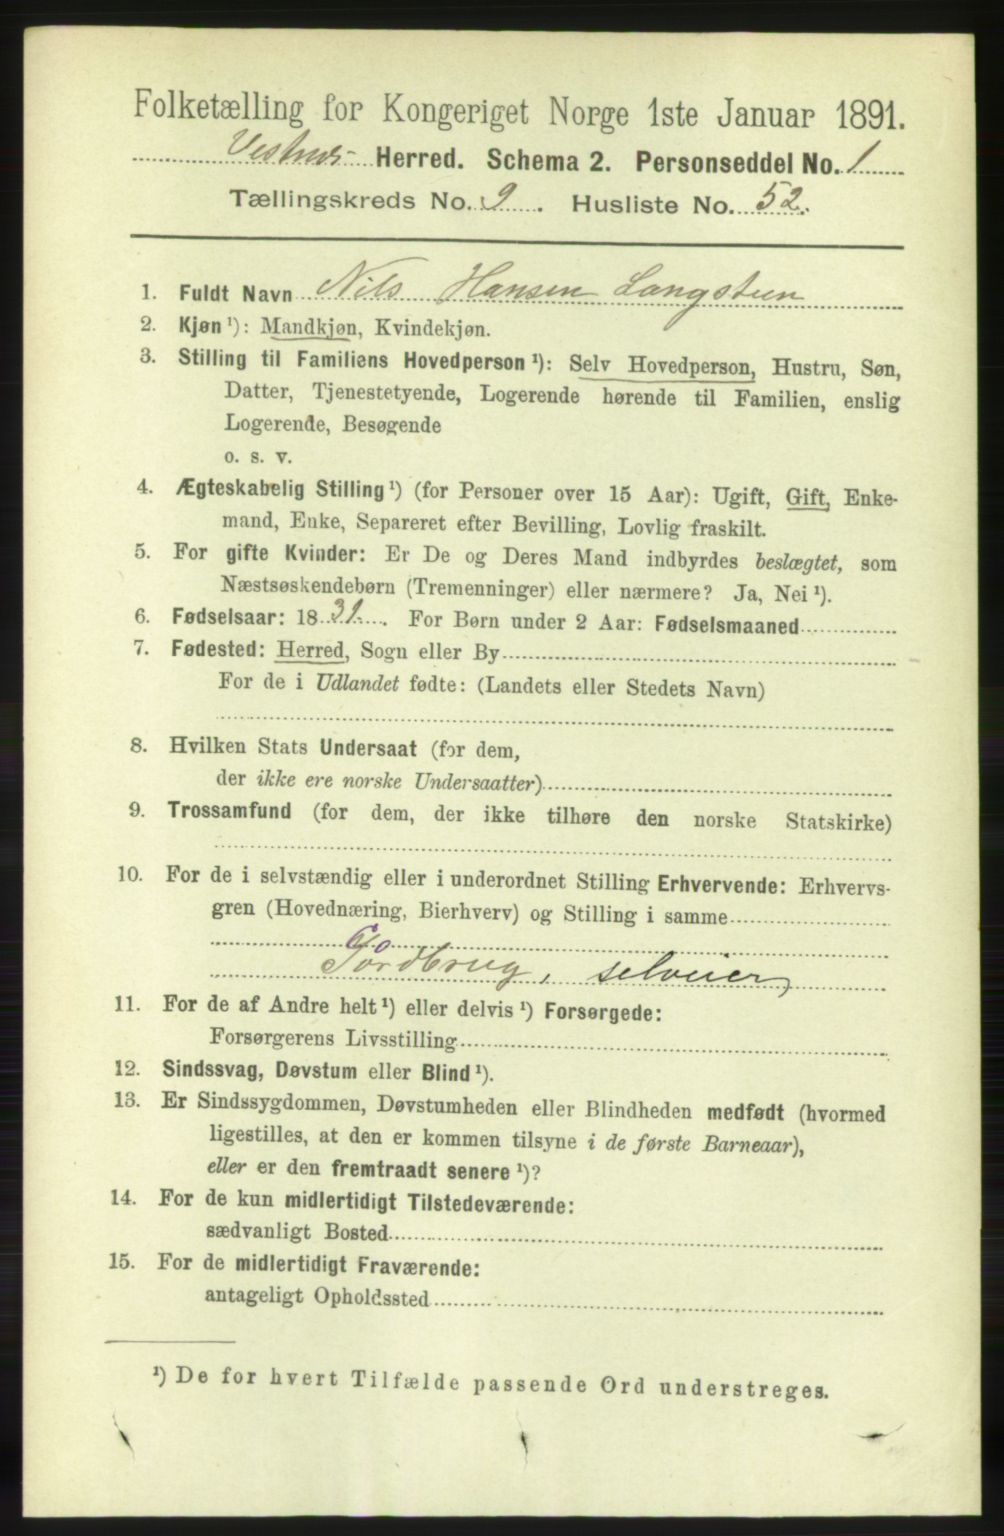 Folketælling for Kongeriget Norge 1ste Januar 1891.
Vestnes Herred. Schema 2. Personseddel No. 1
Tællingskreds No. 9. Husliste No. 52.
1. Fuldt Navn Nils Hansen Langsteen
2. Kjøn ¹): Mandkjøn, Kvindekjøn.
3. Stilling til Familiens Hovedperson ¹): Selv Hovedperson, Hustru, Søn,
Datter, Tjenestetyende, Logerende hørende til Familien, enslig
Logerende, Besøgende
o. s. v.
4. Ægteskabelig Stilling ¹) (for Personer over 15 Aar): Ugift, Gift, Enke-
mand, Enke, Separeret efter Bevilling, Lovlig fraskilt.
5. For gifte Kvinder: Er De og Deres Mand indbyrdes beslægtet, som
Næstsøskendebørn (Tremenninger) eller nærmere? Ja, Nei ¹).
6. Fødselsaar: 1831. For Børn under 2 Aar: Fødselsmaaned
7. Fødested: Herred, Sogn eller By
For de i Udlandet fødte: (Landets eller Stedets Navn)
8. Hvilken Stats Undersaat (for dem,
der ikke ere norske Undersaatter)
9. Trossamfund (for dem, der ikke tilhøre den norske Statskirke)
10. For de i selvstændig eller i underordnet Stilling Erhvervende: Erhvervs-
gren (Hovednæring, Bierhverv) og Stilling i samme
Jordbrug, selveier
11. For de af Andre helt ¹) eller delvis ¹) Forsørgede:
Forsørgerens Livsstilling
12. Sindssvag, Døvstum eller Blind ¹).
13. Er Sindssygdommen, Døvstumheden eller Blindheden medfødt (hvormed
ligestilles, at den er kommen tilsyne i de første Barneaar),
eller er den fremtraadt senere ¹)?
14. For de kun midlertidigt Tilstedeværende:
sædvanligt Bosted
15. For de midlertidigt Fraværende:
antageligt Opholdssted
¹) De for hvert Tilfælde passende Ord understreges.